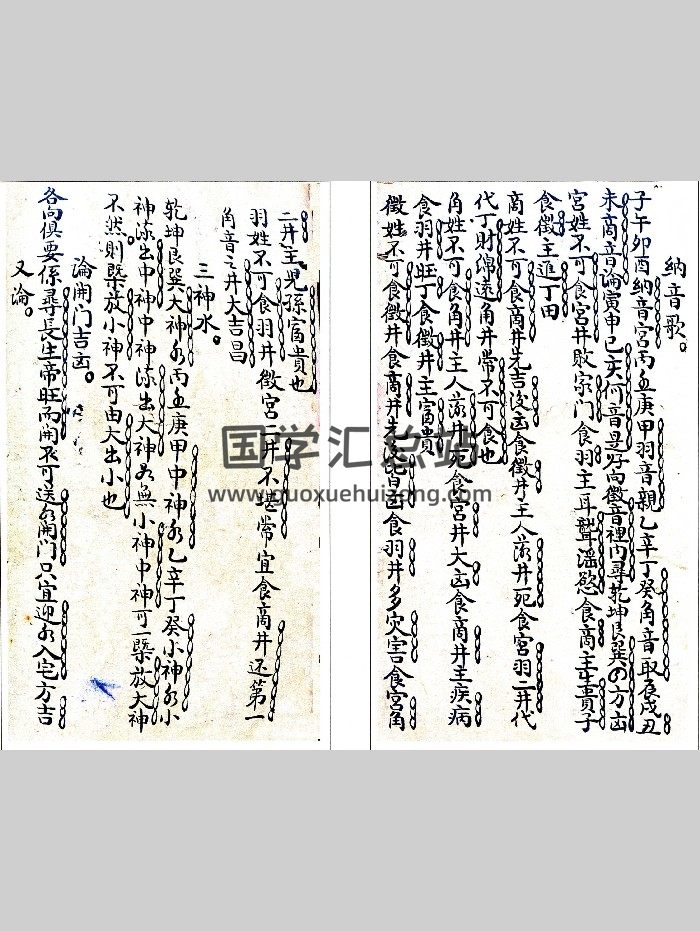 納音歌。
子午卯酉納音宮丙壬庚甲羽音親乙辛丁癸角音取辰戌丑
未商音論寅申巳亥何音是好向徵音裡內尋乾坤艮巽の方凶
宮姓不可食宮井敗家門食羽主耳聾滛慾食商主生貴子
食徵主進丁田
商姓不可食商井先吉後凶食徵井主人落井死食宮羽二井代
代丁財綿遠角井常不可食也
角姓不可食角井主人落井死食宮井大凶食商井主疾病
食羽井旺丁食徵井主富貴
徵姓不可食徵井食商井先吉皆凶食羽井多灾害食宮角
二井主兒孫富貴也
羽姓不可食羽井徵宮二井不堪常宜食商井还第一
角音之井大吉昌
三神水。
乾坤艮巽大神水丙壬庚甲中神水乙辛丁癸小神水小
神流出中神中神流出大神為無小神中神可一槩放大神
不然則槩放小神不可由大出小也
論開門吉凶。
各向俱要係尋長生帝旺而開不可送水開門只宜迎水入宅方吉
又論。
国学汇总站
www.guoxuehuizong.com